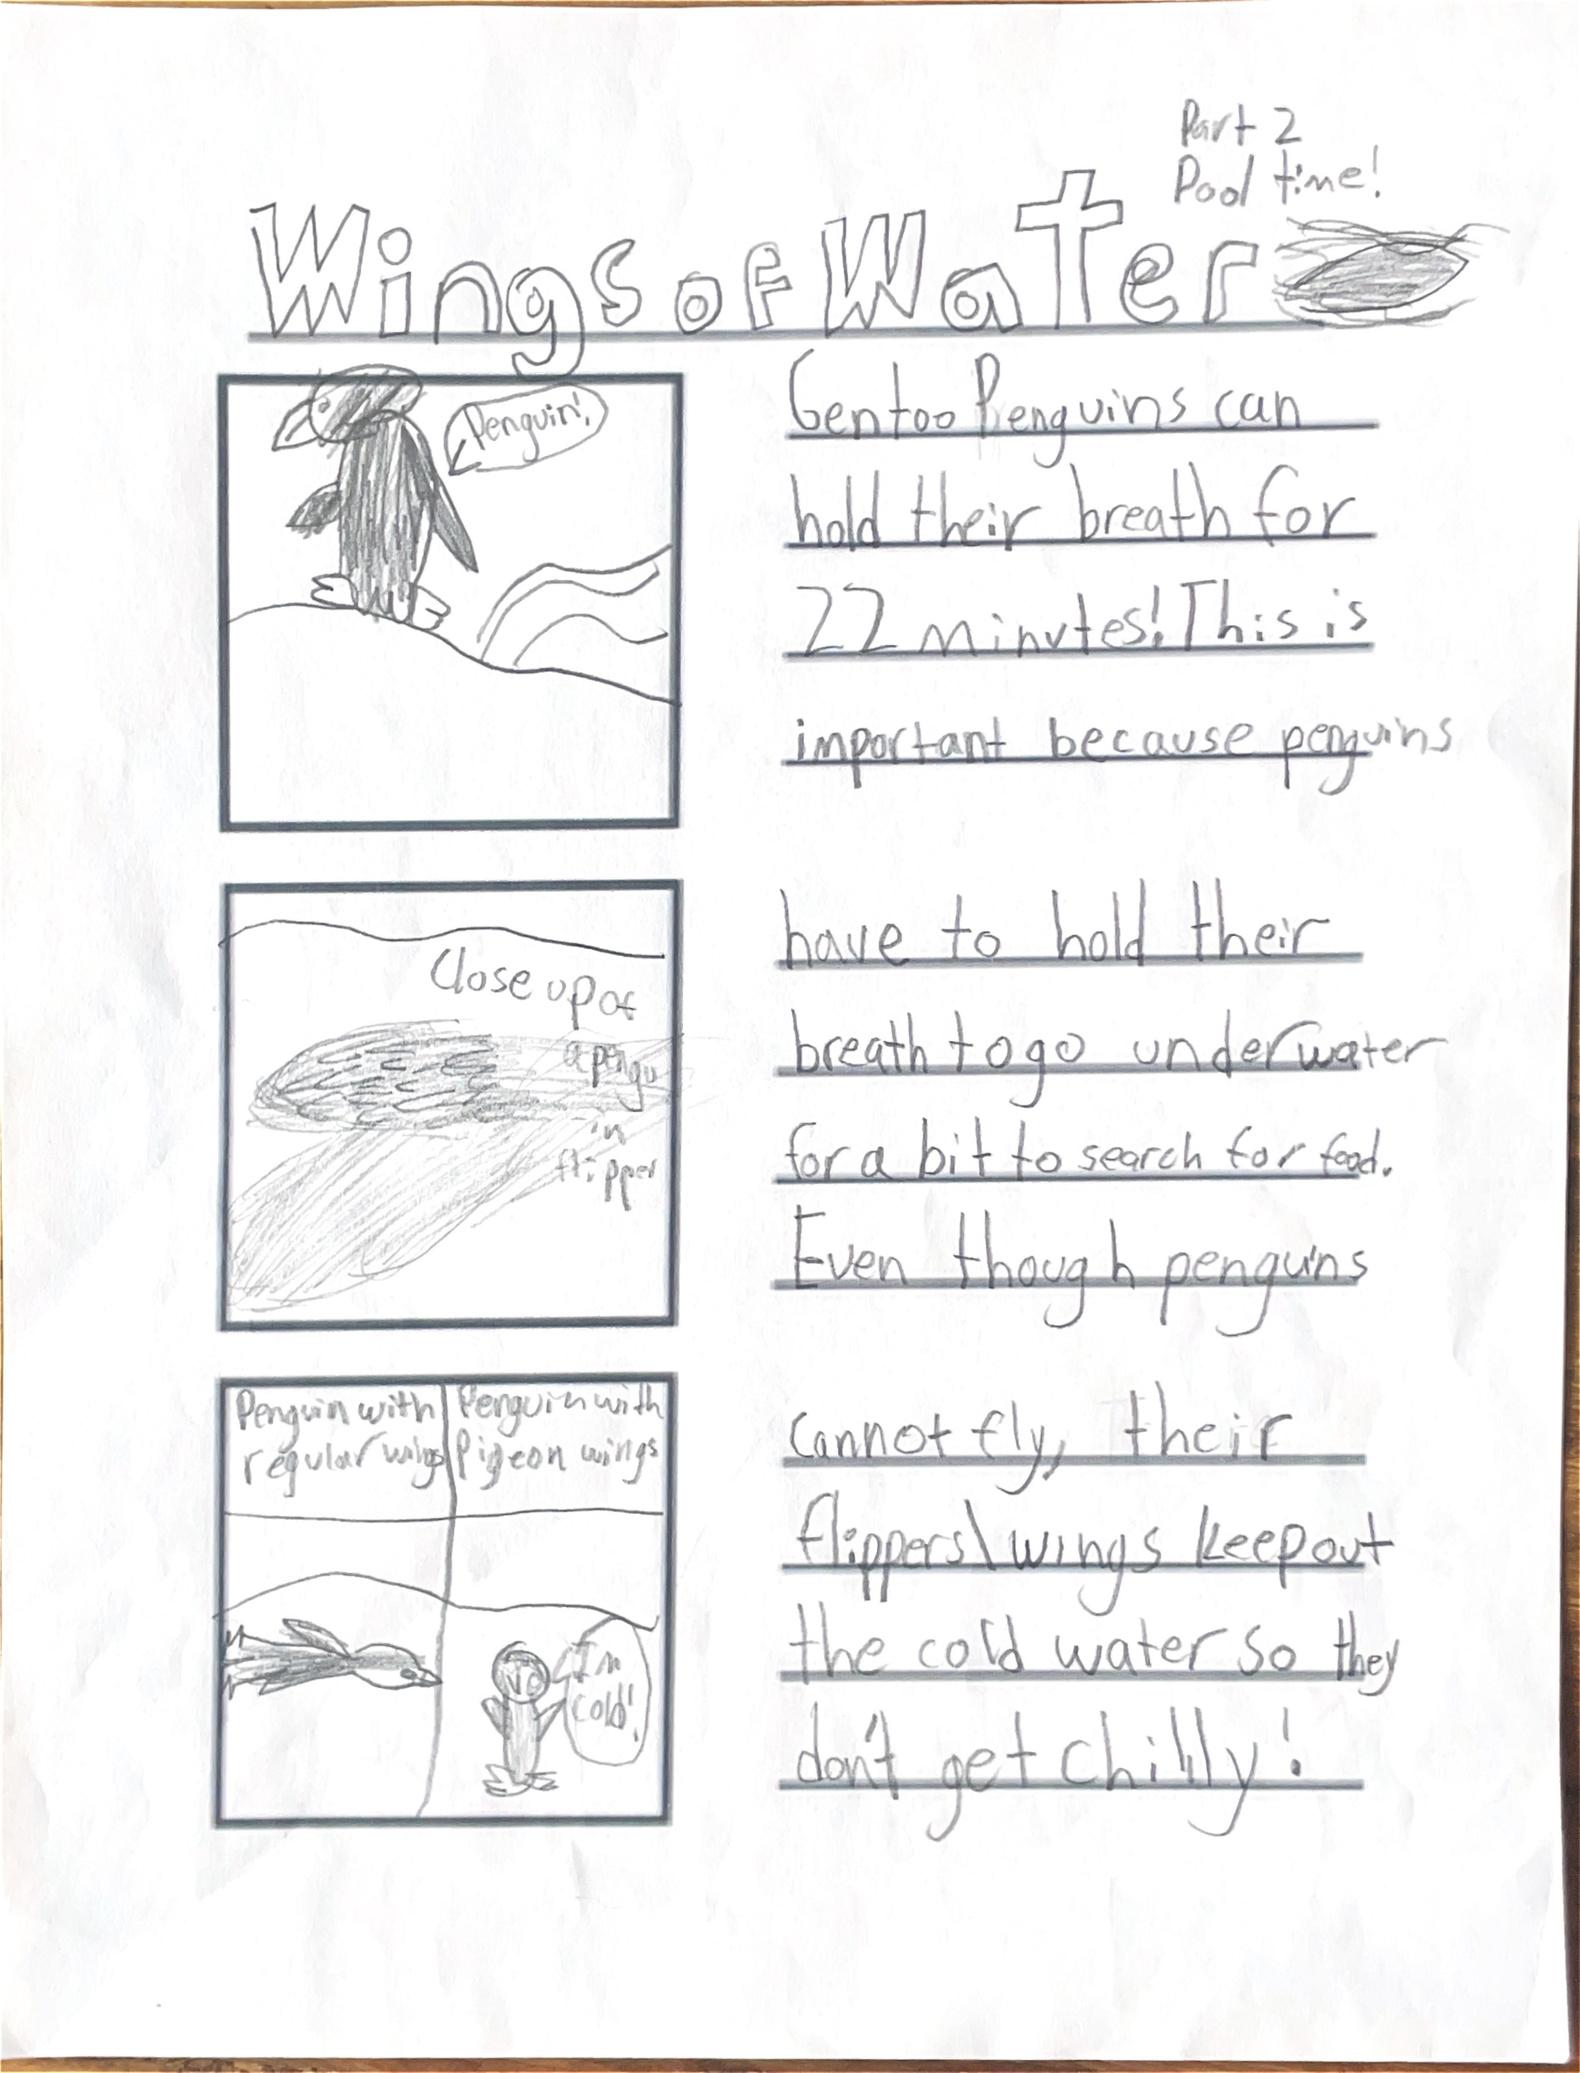 Part 2
Pool time!
Wings of Water
Penguin!
Gentoo Penguins can
hold their breath for
22 minutes! This is
important because penguins
Close up of
a pengu
in
flipper
have to hold their
breath to go underwater
for a bit to search for food.
Even though penguins
Penguin with
regular wings
Penguin with
Pigeon wings
I'm
cold!
cannot fly, their
flippers\wings keep out
the cold water so they
don't get chilly!